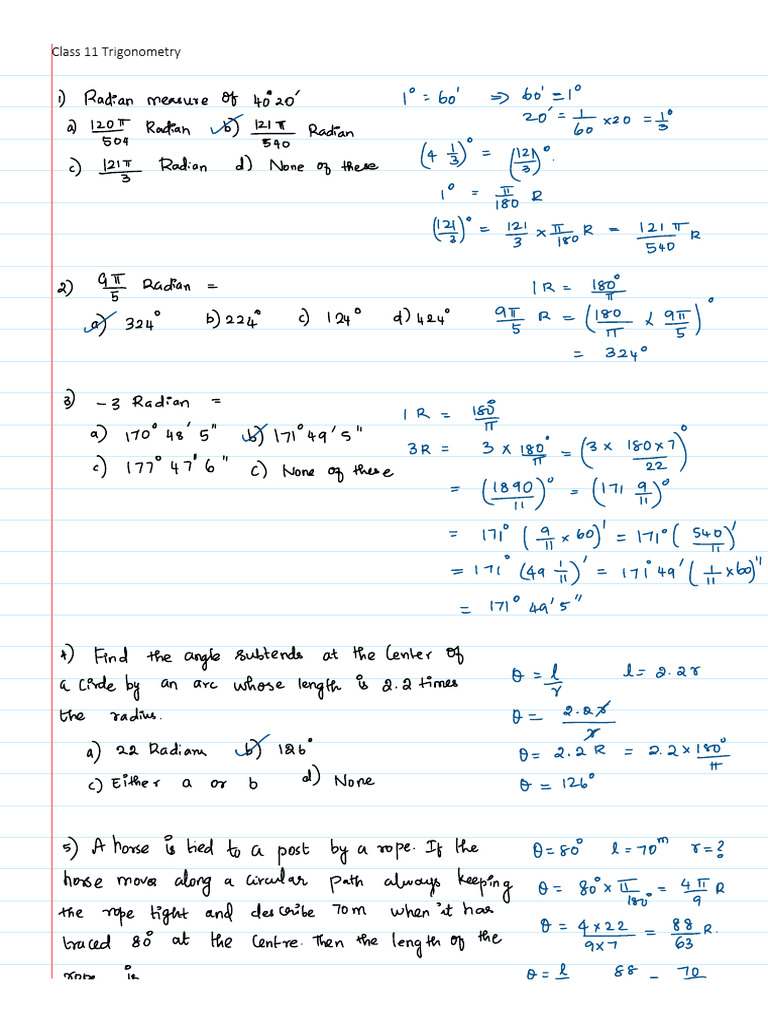 Class 11 Trigonometry
1) Radian measure of 40°20'
a) 120π/504 Radian b) 121π/540 Radian
c) 121π/3 Radian d) None of these
1° = 60' ⇒ 60' = 1°
20' = 1/60 × 20 = 1/3°
(4 1/3)° = (121/3)°.
1° = π/180 R
(121/3)° = 121/3 × π/180 R = 121π/540 R
2) 9π/5 Radian =
a) 324° b) 224° c) 124° d) 424°
1R = 180°/π
9π/5 R = (180/π × 9π/5)°
= 324°
3) -3 Radian =
a) 170° 48' 5" b) 171° 49' 5"
c) 177° 47' 6" c) None of these
1R = 180°/π
3R = 3 × 180°/π = (3 × 180×7/22)°
= (1890/11)° = (171 9/11)°
= 171° (9/11 × 60)' = 171° (540/11)'
= 171° (49 1/11)' = 171° 49' (1/11 × 60)"
= 171° 49' 5"
4) Find the angle subtends at the Center of
a Circle by an arc whose length is 2.2 times
the radius.
a) 22 Radians b) 126°
c) Either a or b d) None
θ = l/r l = 2.2r
θ = 2.2r/r
θ = 2.2 R = 2.2 × 180°/π
θ = 126°
5) A horse is tied to a post by a rope. If the
horse moves along a circular path always keeping
the rope tight and describe 70m when it has
traced 80° at the Centre. Then the length of the
rope is
θ = 80° l = 70m r = ?
θ = 80° × π/180° = 4π/9 R
θ = 4×22/9×7 = 88/63 R.
θ = l 88 = 70